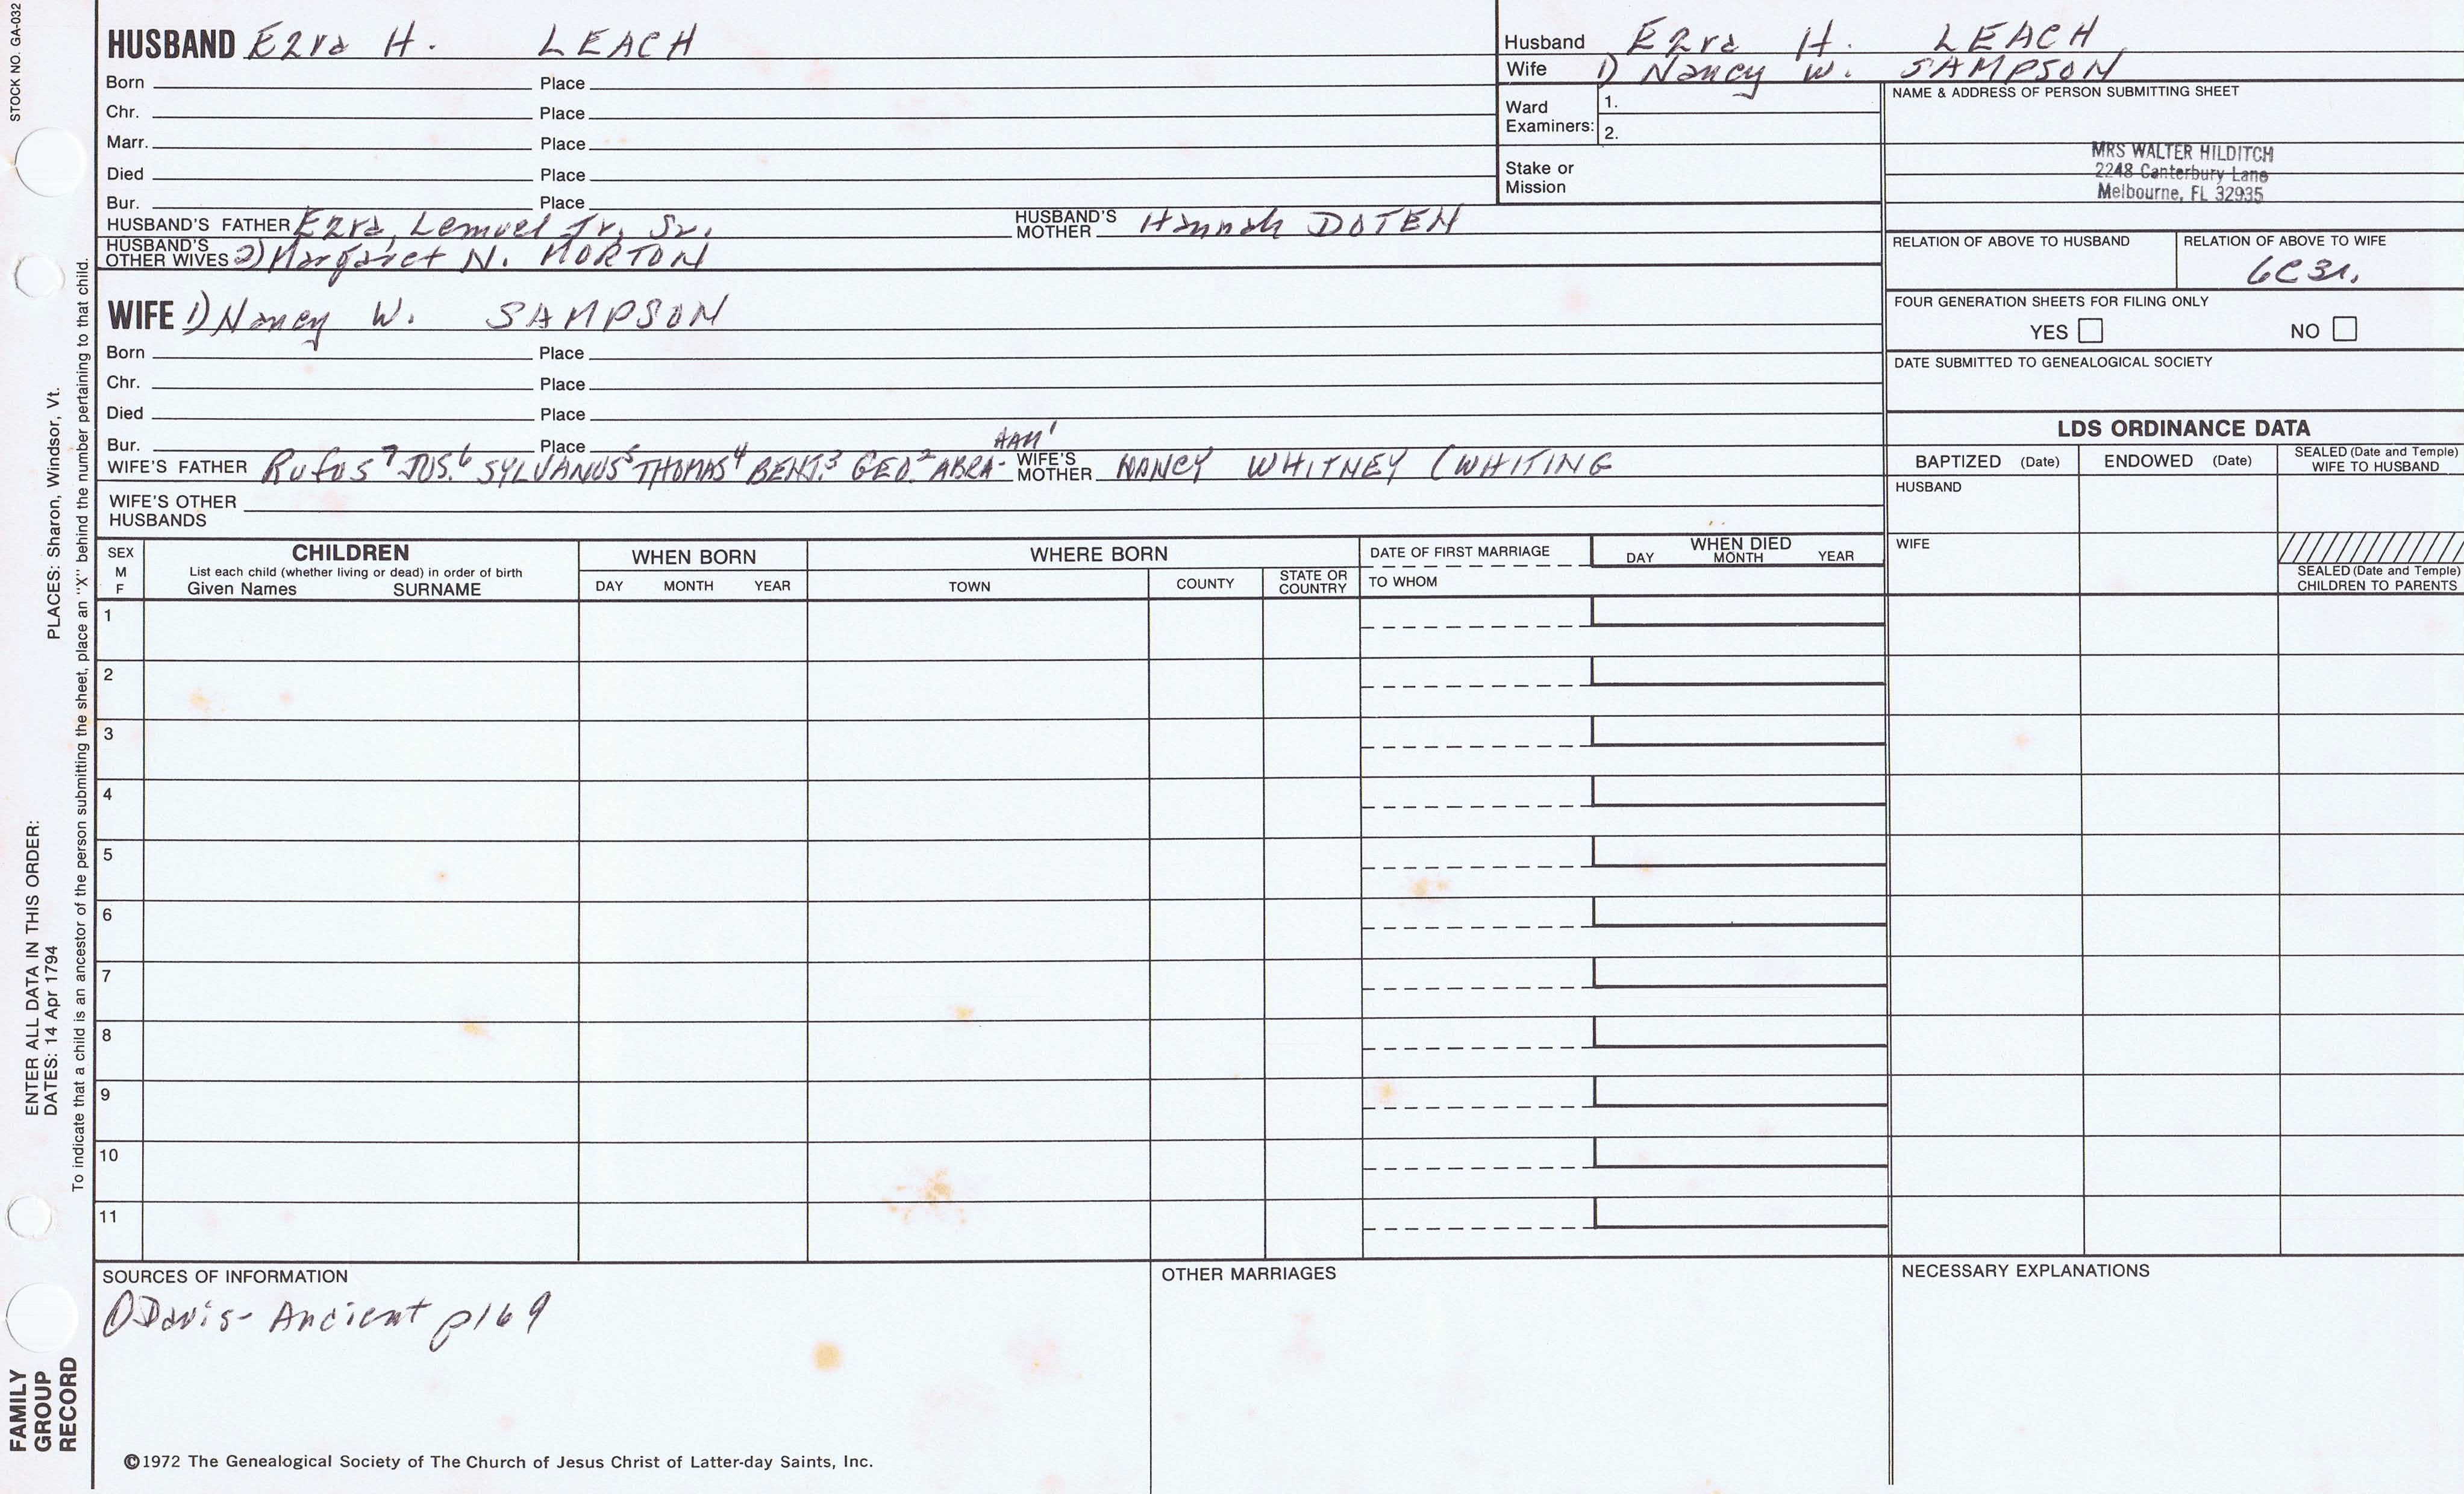 STOCK NO. GA-032
HUSBAND Ezra H. LEACH
Born Place
Chr. Place
Marr. Place
Died Place
Bur. Place
HUSBAND'S FATHER Ezra, Lemuel Jr, Sr. HUSBAND'S MOTHER Hannah DOTEN
HUSBAND'S OTHER WIVES 2) Margaret N. MORTON
WIFE 1) Nancy W. SAMPSON
Born Place
Chr. Place
Died Place
Bur. Place
HAM¹
WIFE'S FATHER Rufus⁷ JOS.⁶ SYLVANUS⁵ THOMAS⁴ BENJ.³ GEO.² ABRA- WIFE'S MOTHER NANCY WHITNEY (WHITING
WIFE'S OTHER HUSBANDS
Husband Ezra H. LEACH
Wife 1) Nancy W. SAMPSON
Ward Examiners: 1.
2.
Stake or Mission
NAME & ADDRESS OF PERSON SUBMITTING SHEET
MRS WALTER HILDITCH
2248 Canterbury Lane
Melbourne, FL 32935
RELATION OF ABOVE TO HUSBAND RELATION OF ABOVE TO WIFE
6C3r.
FOUR GENERATION SHEETS FOR FILING ONLY
YES NO
DATE SUBMITTED TO GENEALOGICAL SOCIETY
LDS ORDINANCE DATA
BAPTIZED (Date) ENDOWED (Date) SEALED (Date and Temple) WIFE TO HUSBAND
HUSBAND
WIFE
SEALED (Date and Temple) CHILDREN TO PARENTS
SEX M F
CHILDREN
List each child (whether living or dead) in order of birth
Given Names SURNAME
WHEN BORN
DAY MONTH YEAR
WHERE BORN
TOWN COUNTY STATE OR COUNTRY
DATE OF FIRST MARRIAGE
TO WHOM
WHEN DIED
DAY MONTH YEAR
1
2
3
4
5
6
7
8
9
10
11
SOURCES OF INFORMATION
1) Davis- Ancient p169
OTHER MARRIAGES
NECESSARY EXPLANATIONS
©1972 The Genealogical Society of The Church of Jesus Christ of Latter-day Saints, Inc.
FAMILY
GROUP
RECORD
ENTER ALL DATA IN THIS ORDER:
DATES: 14 Apr 1794 PLACES: Sharon, Windsor, Vt.
To indicate that a child is an ancestor of the person submitting the sheet, place an "X" behind the number pertaining to that child.